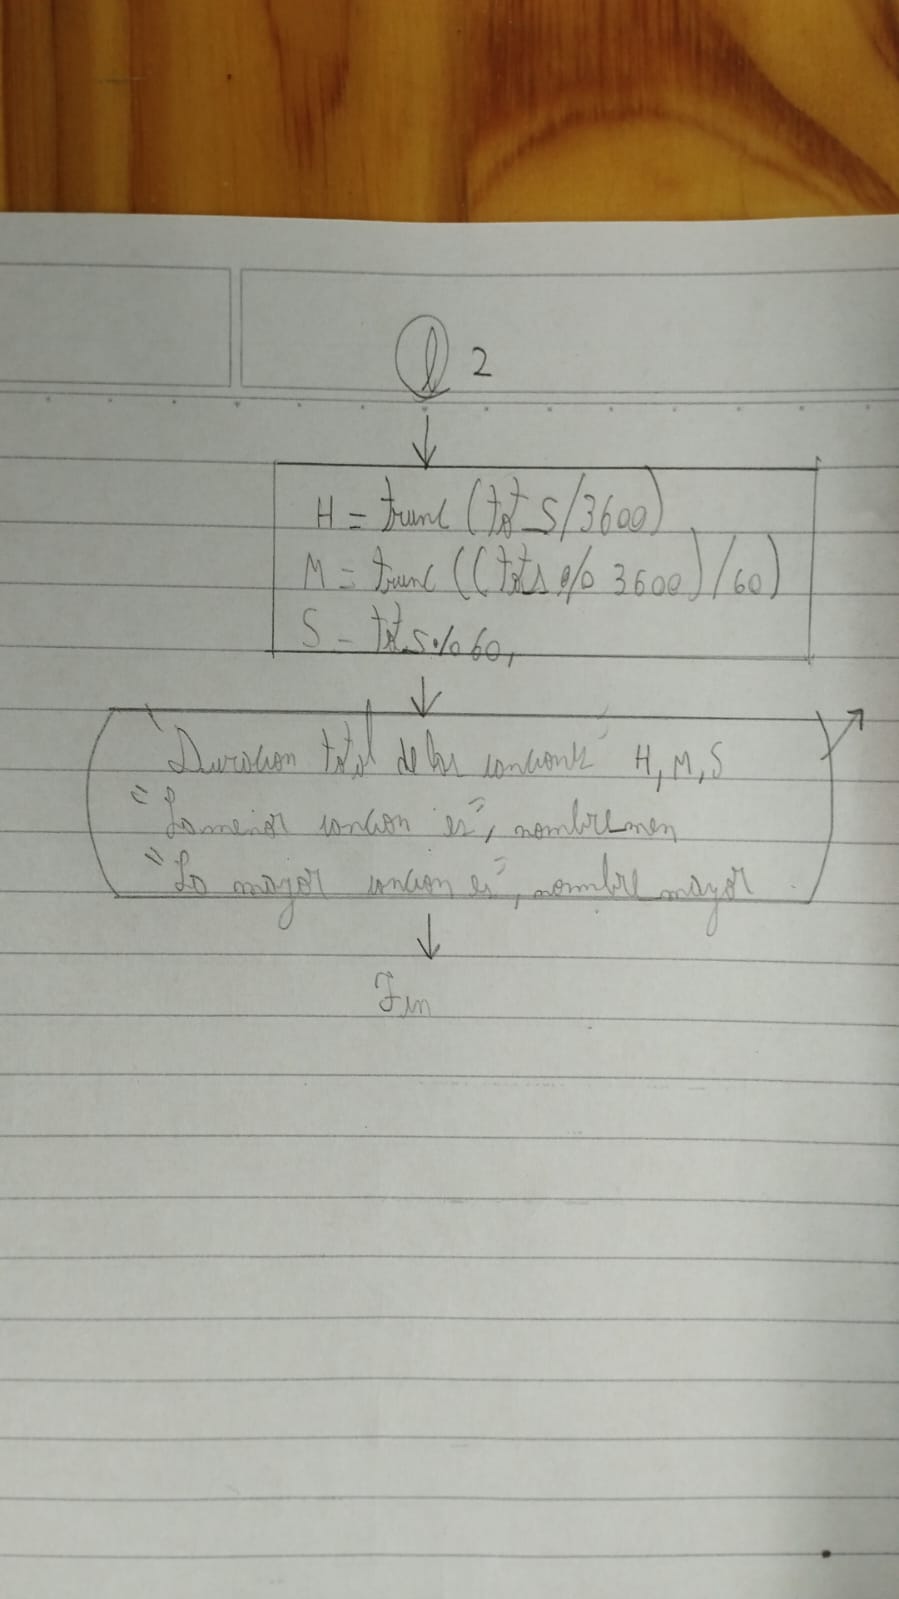 l 2
H = trunc (tot s/3600)
M = trunc ((tots % 3600)/60)
S = tots % 60,
"Duracion total de las canciones" H, M, S
"La menor cancion es", nombremen
"La mayor cancion es", nombre mayor
Fin